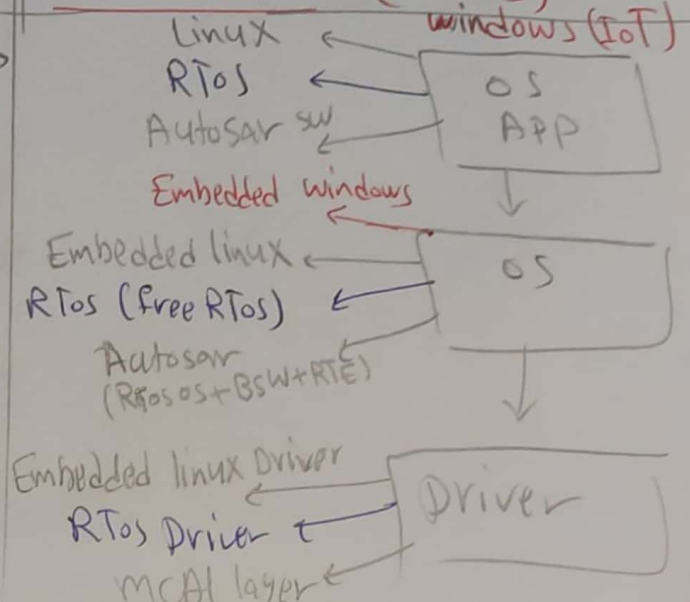 windows (IoT)
Linux
RTos
Autosar sw
OS
APP
Embedded windows
Embedded linux
RTos (free RTos)
Autosar
OS
Embedded linux Driver
RTos Driver
MCAl layer
Driver